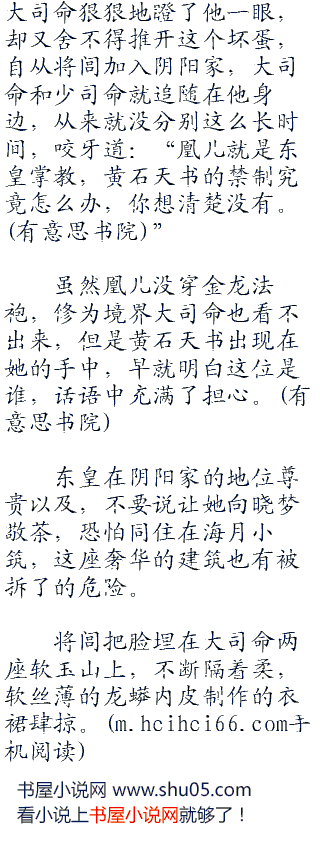 大司命狠狠地瞪了他一眼，
却又舍不得推开这个坏蛋，
自从将闾加入阴阳家，大司
命和少司命就追随在他身
边，从来就没分别这么长时
间，咬牙道：“凰儿就是东
皇掌教，黄石天书的禁制究
竟怎么办，你想清楚没有。
(有意思书院)”
虽然凰儿没穿金龙法
袍，修为境界大司命也看不
出来，但是黄石天书出现在
她的手中，早就明白这位是
谁，话语中充满了担心。(有
意思书院)
东皇在阴阳家的地位尊
贵以及，不要说让她向晓梦
敬茶，恐怕同住在海月小
筑，这座奢华的建筑也有被
拆了的危险。
将闾把脸埋在大司命两
座软玉山上，不断隔着柔，
软丝薄的龙蟒内皮制作的衣
裙肆掠。(m.hcihci66.com手
机阅读)
书屋小说网 www.shu05.com
看小说上书屋小说网就够了！